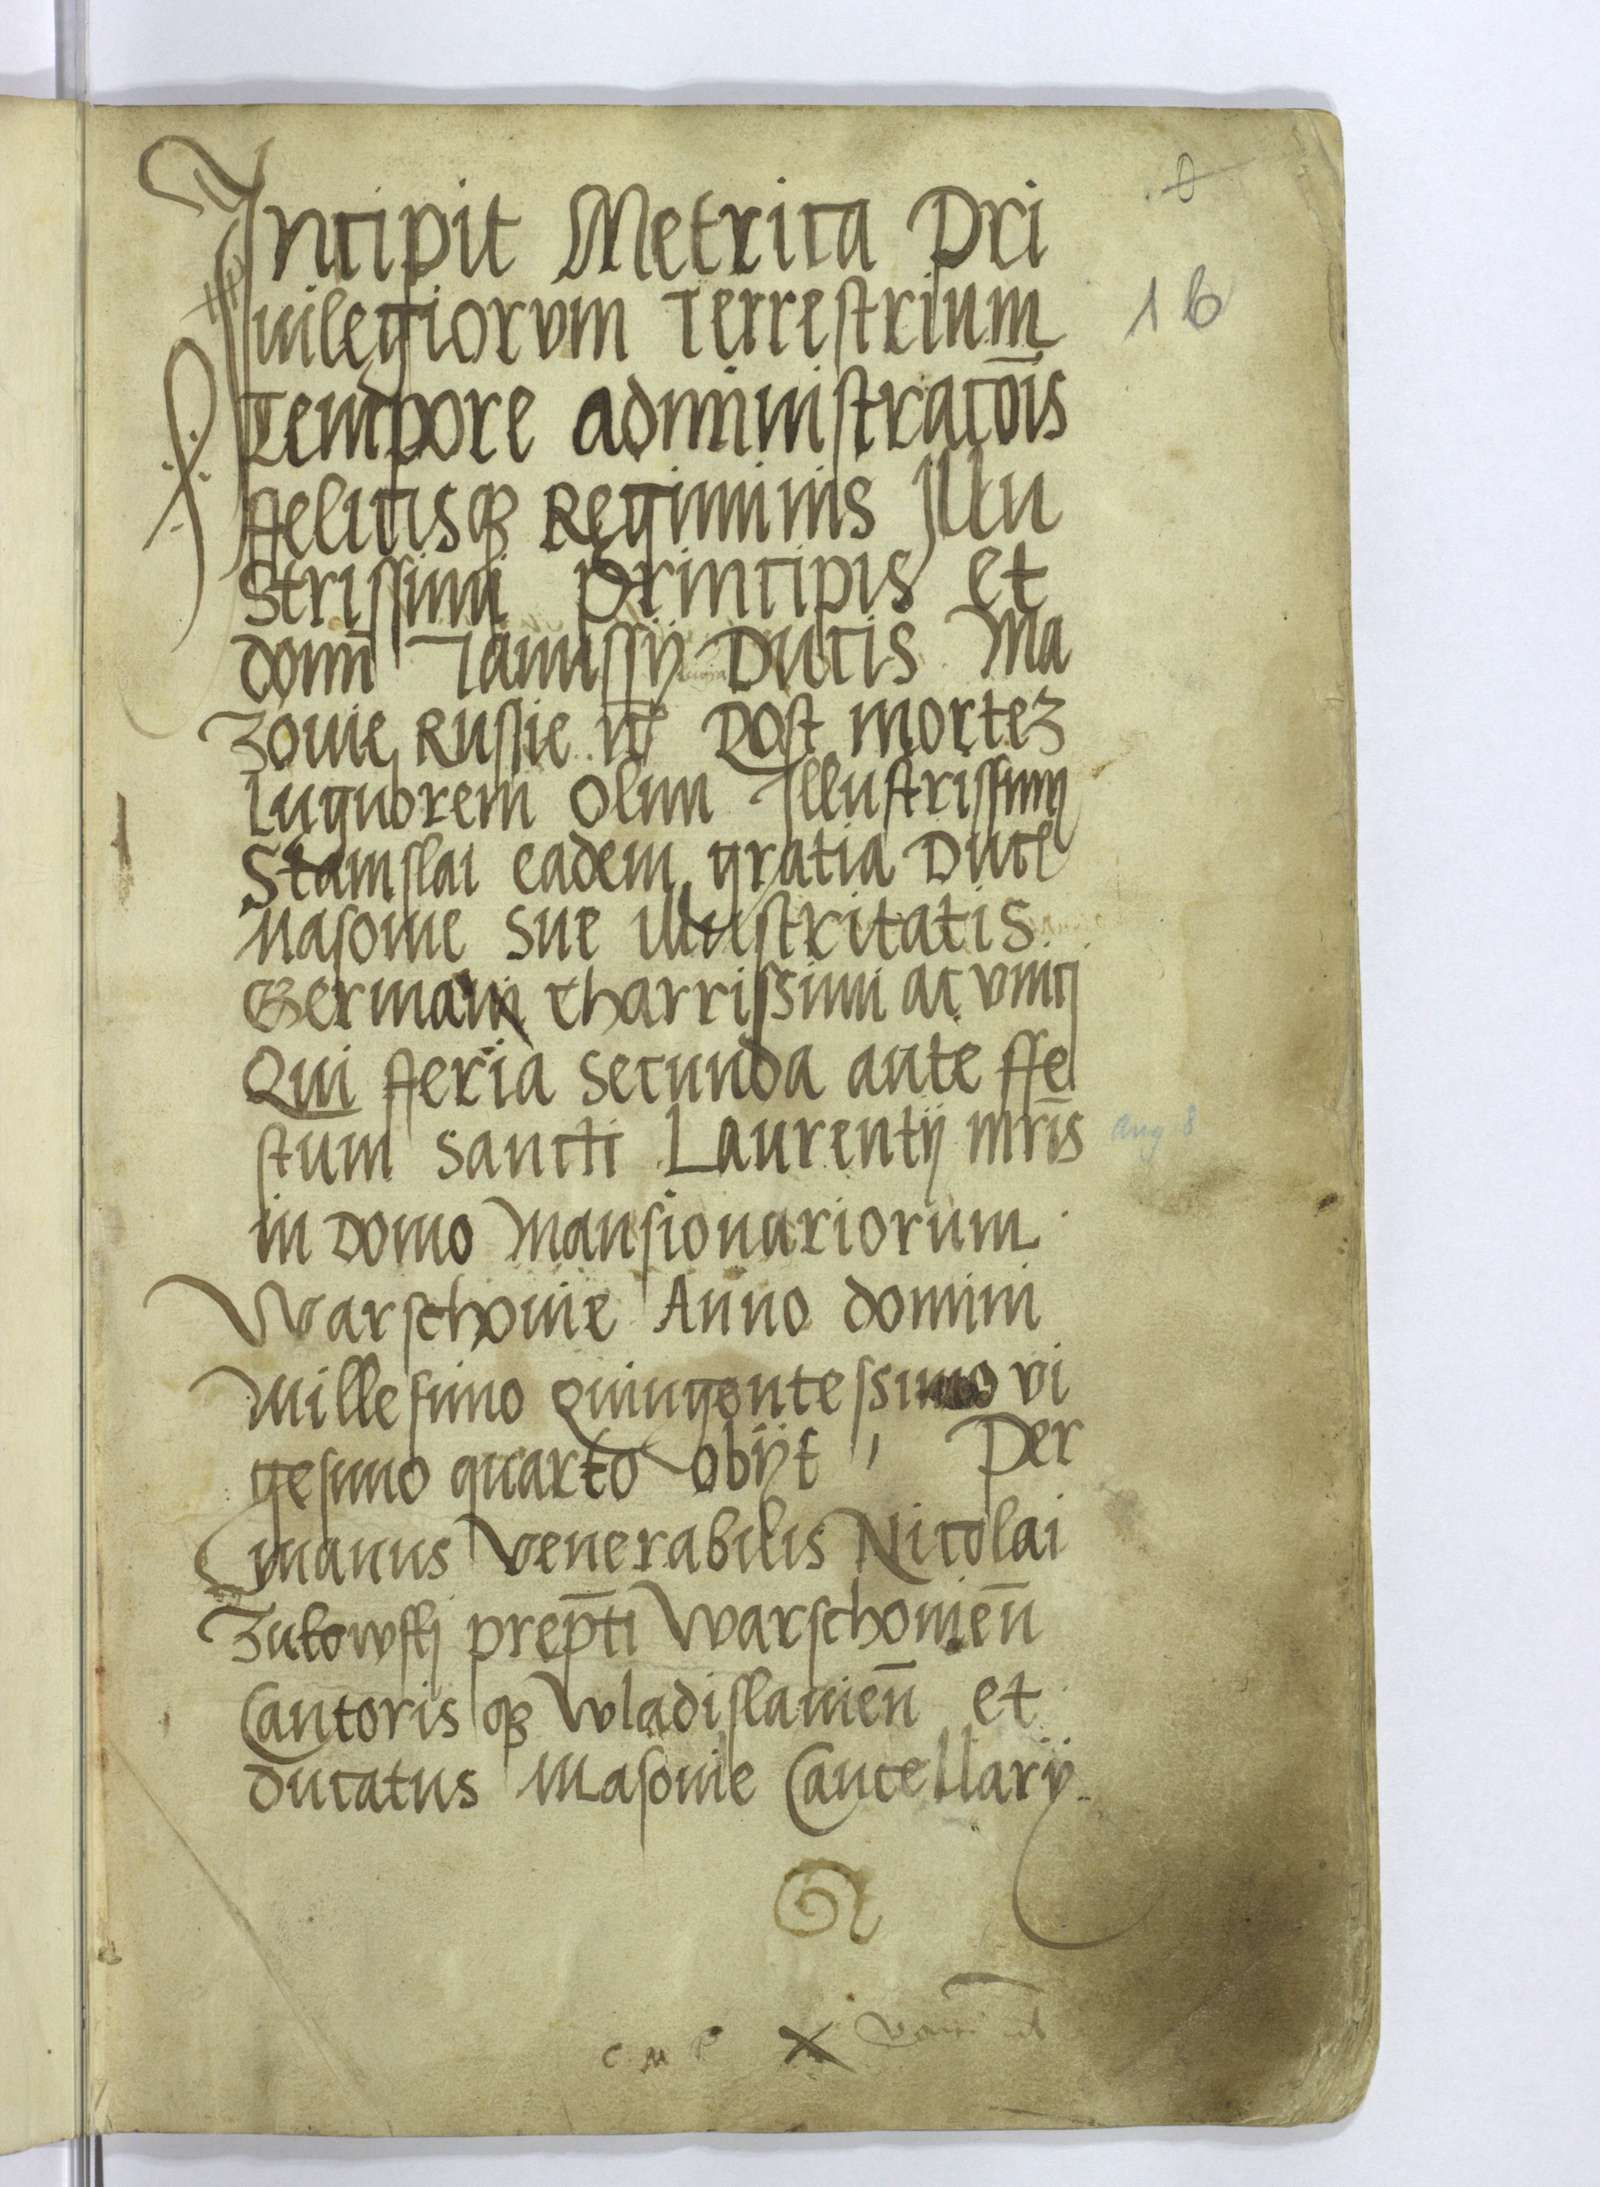 Incipit Metrica Pri
uilegiorvm Terrestrium
Tempore administracōis
ffelicisqꝫ Regiminis Illu
Strissimi principis et
domī Janussij Ducis Ma
Zouie Russie Post mortez
lugubrem olim Illustrissimj
Stanislai eadem gratia Ducis
Masouie sue illustritatis
Germani charrissimi ac vnicj
Qui fferia secunda ante ffe
stum sancti Laurentij mr̄is
Aug 8
in domo Mansionariorum
Warschouie Anno domini
Millesimo Quingentessimo vi
gesimo quarto obijt , Per
manus venerabilis Nicolai
Zukowskj prep̄ti Warschouien̄
Cantoris qꝫ Wladislauien̄ et
ducatus Masouie Cancellarij
1 b
C M P